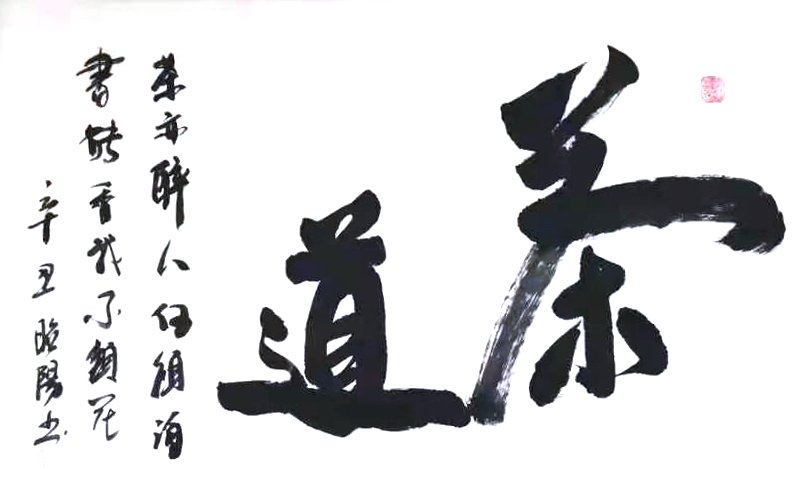 茶道
茶亦醉人何須酒
書能香我不須花
辛丑昭陽书